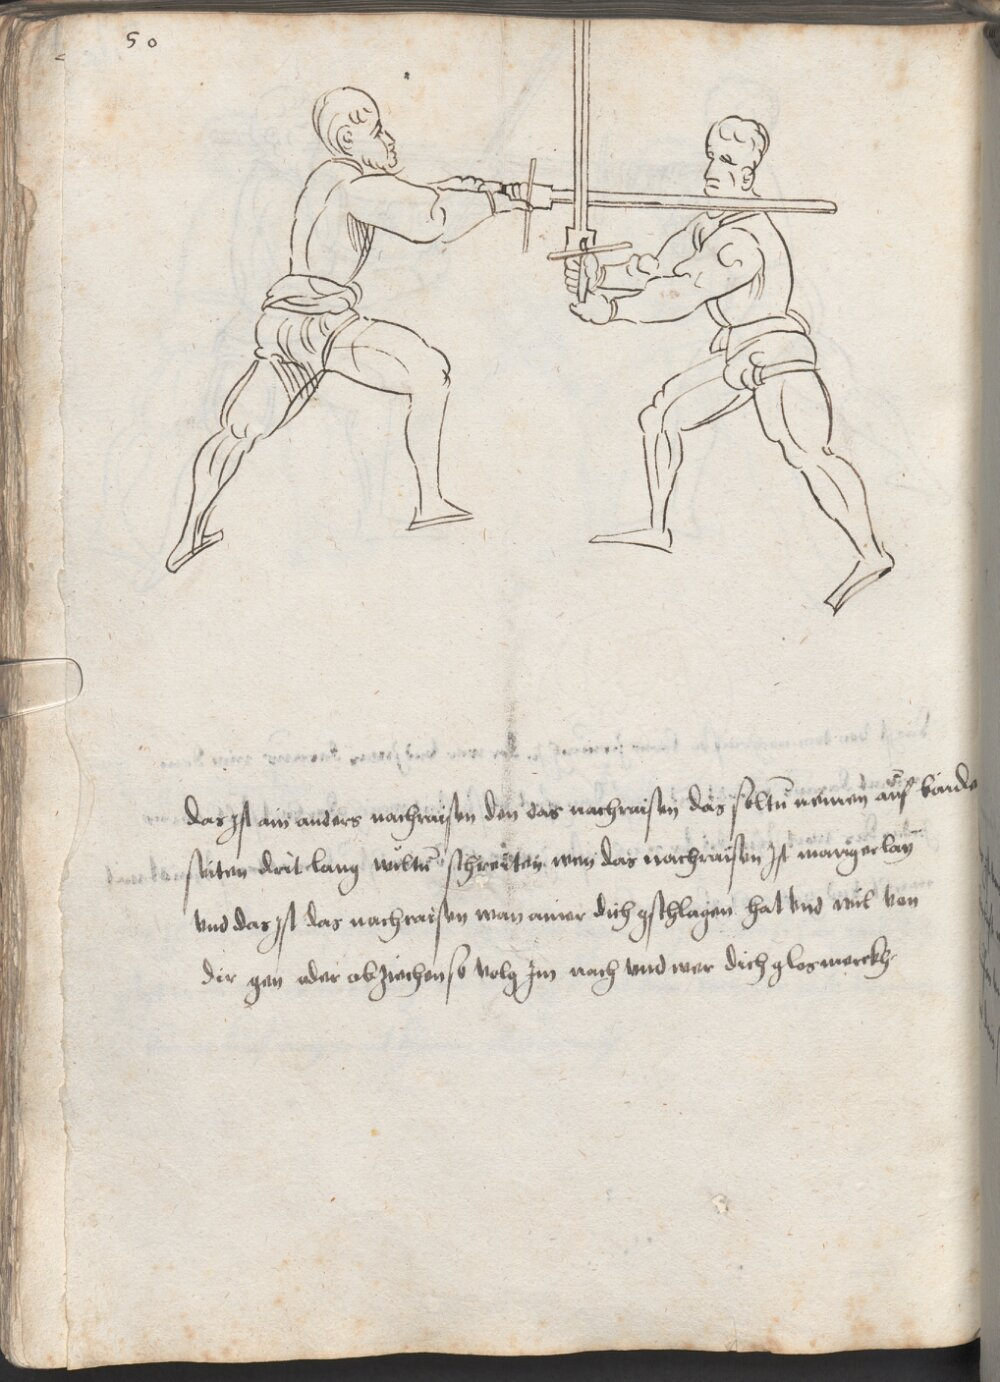 50
das ist ain anders nachraisen den das nachraisen das soltu nemen auf baide
seiten drit lang wiltu schreiten wen das nachraisen ist manigerlay
vnd das ist das nachraisen wan ainer dich gschlagen hat vnd wil von
dir gen oder abziechen so volg Im nach vnd wer dich glos merckh